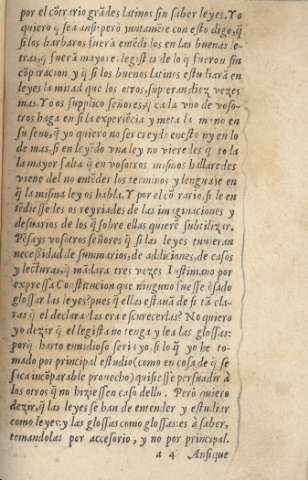 por el cõtrario grãdes latinos sin saber leyes. Yo
quiero q̃ sea ansi: però juntamẽte con esto digo, q̃
si los barbaros fuerã emẽdados en las buenas le-
tras, q̃ fuerã mayores legistas de lo q̃ fuerõ sin
cõparacion y q̃ si los buenos latinos estudiarã en
leyes la mitad que los otros, superarian diez vezes
mas. Y o os supplico señores, q̃ cada vno de voso-
tros haga en si la experiẽcia y meta la mano en
su seno, q̃ yo quiero no ser creydo en esto ny en lo
de mas, si en leyẽdo vna ley no viere les q̃ toda
la mayor falta q̃ en vosotros mismos hallaredes
viene del no entẽder los terminos y lenguaje en
q̃ la misma ley os habla. Y por el cõtrario, si le en
tẽdiesse des os reyriades de las imaginaciones y
desuarios de los q̃ sobre ellas quierẽ subtilizar.
Pẽsays vosotros señores q̃ si las leyes tuuieran
necessidad de summarios, de addiciones, de casos
y lecturas, q̃ mãdara tres vezes Iustiniano por
expressa Constitucion que ninguno fuesse osado
glossar las leyes? pues q̃ ellas estauã de si tã cla-
ras q̃ el declararlas era escurecerlas? No quiero
yo dezir q̃ el legista no tenga y lea las glossas:
porq̃ harto enuidioso seria yo, si lo q̃ yo he to-
mado por principal estudio (como en cosa de q̃ se
saca incõparable prouecho) quisiesse persuadir à
los otros q̃ no hiziessen caso dello. Però quiero
dezir, q̃ las leyes se han de entender y estudiar
como leyes: y las glossas como glossas: es à saber,
tomandolas por accesorio, y no por principal.
a 4 Ansique